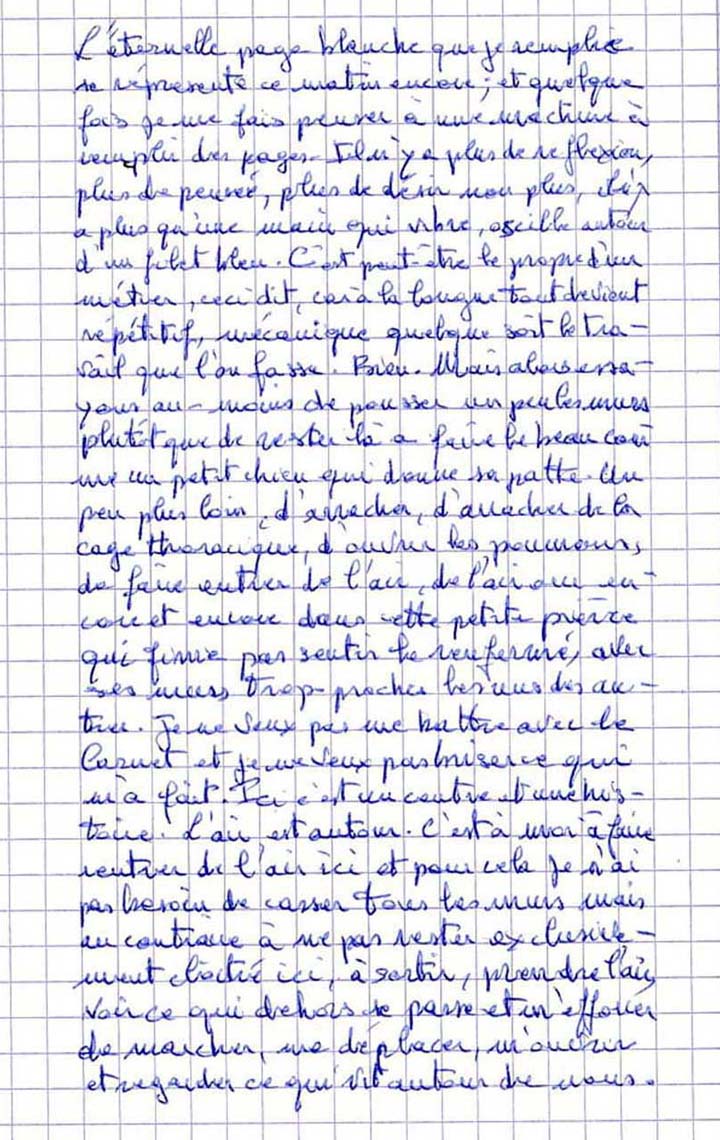 L'éternelle page blanche que je remplie
se représente ce matin encore ; et quelque
fois je me fais penser à une machine à
remplir des pages. Il n'y a plus de reflexion,
plus de pensée, plus de désir non plus, il n'y
a plus qu'une main qui vibre, oscille autour
d'un filet bleu. C'est peut-être le propre d'un
métier, ceci dit, car à la longue tout devient
répétitif, mécanique quelque soit le tra-
vail que l'on fasse. Bien. Mais alors essa-
yons au-moins de pousser un peu les murs
plutôt que de rester là à faire le beau com
me un petit chien qui donne sa patte. Un
peu plus loin, d'arracher, d'arracher de la
cage thoracique, d'ouvrir les poumons,
de faire entrer de l'air, de l'air oui en-
core et encore dans cette petite
qui finie par sentir le renfermé, avec
ses murs trop-proches les uns des au-
tres. Je ne veux pas me battre avec le
Carnet et je ne veux pas briser ce qui
m'a fait. Ici c'est un centre d'une his-
toire. L'air est autour. C'est à moi à faire
rentrer de l'air ici et pour cela je n'ai
pas besoin de casser tous les murs mais
au contraire à ne pas rester exclusive-
ment cloîtré ici, à sortir, prendre l'air,
voir ce qui dehors se passe et m'efforcer
de marcher, me déplacer, m'ouvrir
et regarder ce qui vit autour de nous.